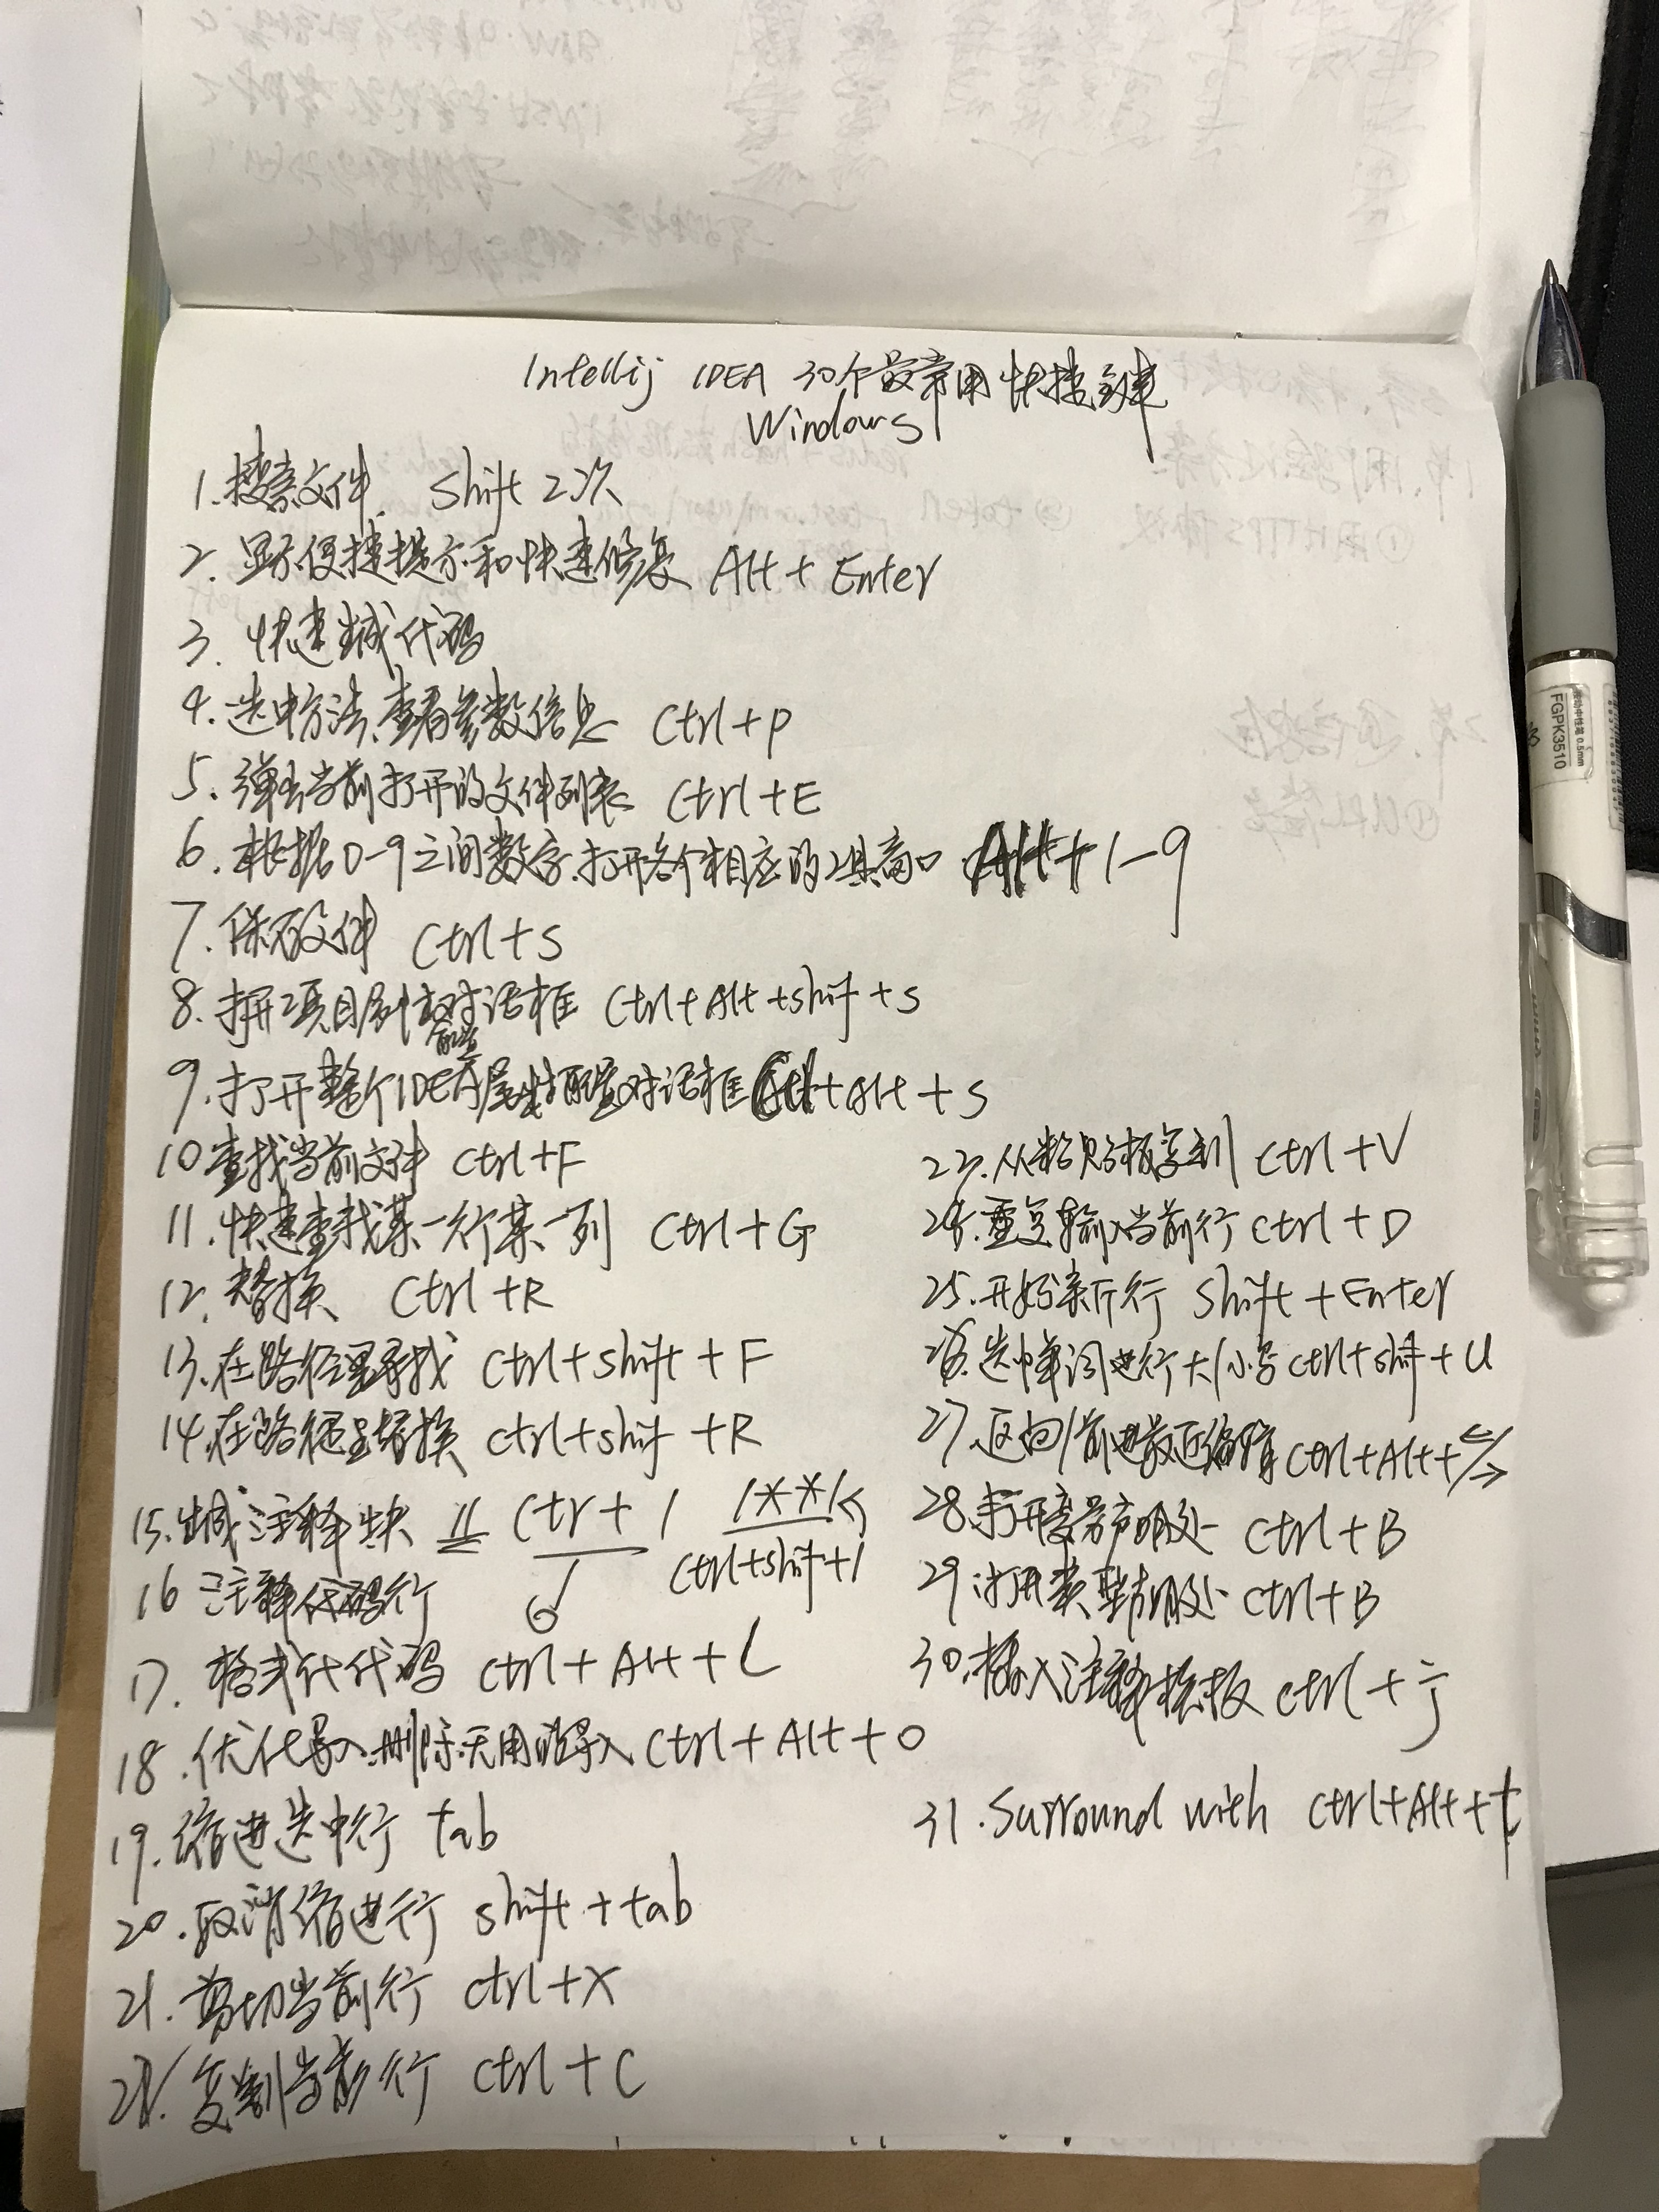 Intellij IDEA 30个最常用快捷键
Windows
1.搜索文件. Shift 2次
2. 显示便捷提示和快速修复 Alt + Enter
3. 快速生成代码
4. 选中方法,查看参数信息 Ctrl+P
5. 弹出当前打开的文件列表 Ctrl+E
6. 根据0-9之间数字,打开各个相应的工具窗口 Alt+1-9
7.保存文件 Ctrl+S
8.打开项目属性对话框 Ctrl+Alt+shift+S
9.打开整个IDEA属性配置对话框 Ctrl+Alt+S
10查找当前文件 Ctrl+F
11.快速查找某一行某一列 Ctrl+G
12.替换 Ctrl+R
13.在路径里寻找 Ctrl+shift+F
14.在路径里替换 ctrl+shift+R
15.生成注释块 // Ctr+/ /**/
ctrl+shift+/
16 注释代码行
17. 格式化代码 ctrl+Alt+L
18.优化导入,删除无用的导入 Ctrl+Alt+O
19.缩进选中行 tab
20.取消缩进行 shift+tab
21.剪切当前行 ctrl+X
22.复制当前行 ctrl+C
23.从粘贴板拿到 Ctrl+V
24.重复输入当前行 Ctrl+D
25.开始新行 Shift+Enter
26.选中单词进行大/小写 ctrl+shift+U
27.返回/前进最近编辑 Ctrl+Alt+←/→
28.打开变量声明处 Ctrl+B
29.打开类型声明处 Ctrl+B
30.插入注释模板 ctrl+j
31.Surround with ctrl+Alt+t
FGPK3510
0.5mm